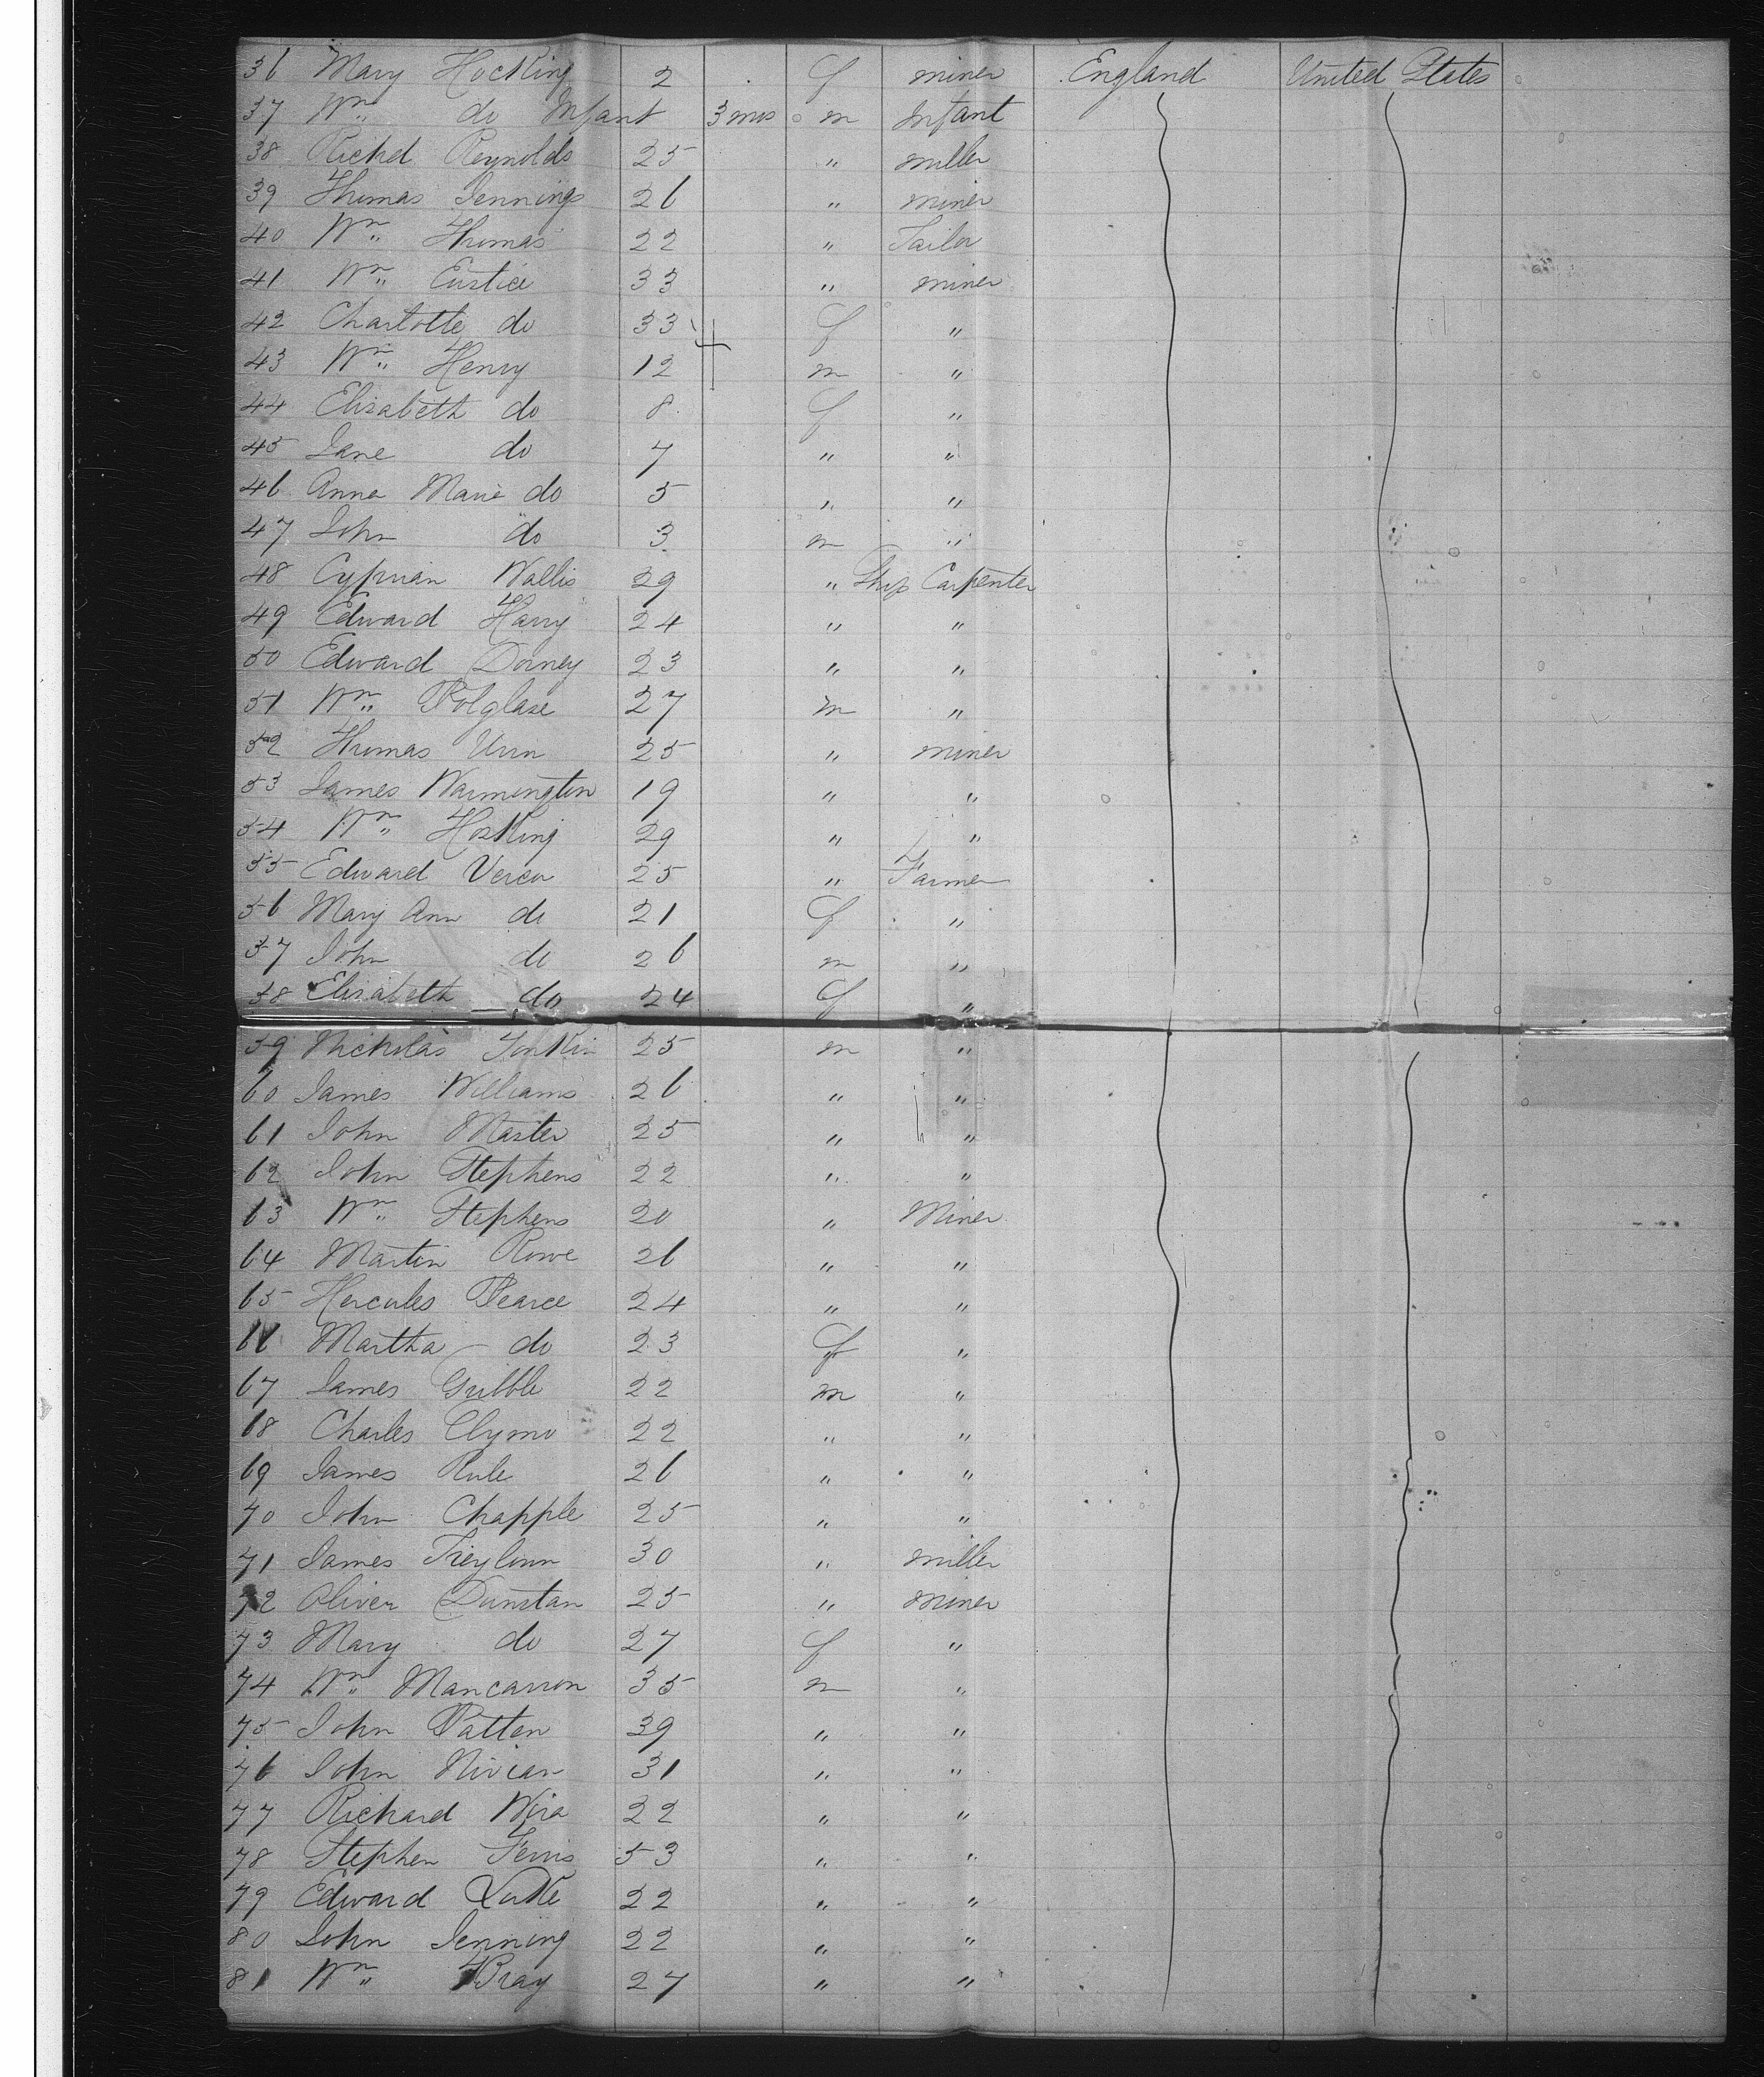 36 Mary Hocking 2 f miner England United States
37 Wm do Infant 3 mos m Infant
38 Richd Reynolds 25 " miller
39 Thomas Jennings 26 " miner
40 Wm Thomas 22 " Tailor
41 Wm Eustice 33 " miner
42 Charlotte do 33 f "
43 Wm Henry 12 m "
44 Elisabeth do 8 f "
45 Jane do 7 " "
46 Anna Maria do 5 " "
47 John do 3 m "
48 Cyprian Wallis 29 " Ship Carpenter
49 Edward Harry 24 " "
50 Edward Dorney 23 " "
51 Wm Polglase 27 m "
52 Thomas Uren 25 " miner
53 James Warmington 19 " "
54 Wm Hosking 29 " "
55 Edward Vercoe 25 " Farmer
56 Mary Ann do 21 f "
57 John do 26 m "
58 Elisabeth do 24 f "
59 Nicholas Jenkin 25 m "
60 James Williams 26 " "
61 John Master 25 " "
62 John Stephens 22 " "
63 Wm Stephens 20 " Miner
64 Martin Rowe 26 " "
65 Hercules Pearce 24 " "
66 Martha do 23 f "
67 James Gribble 22 m "
68 Charles Clymo 22 " "
69 James Rule 26 " "
70 John Chapple 25 " "
71 James 30 " miller
72 Oliver Dunstan 25 " miner
73 Mary do 27 f "
74 Wm Mancarron 35 m "
75 John Patten 39 " "
76 John Nivian 31 " "
77 Richard 22 " "
78 Stephen Ferris 53 " "
79 Edward 22 " "
80 John Jenning 22 " "
81 Wm Bray 27 " "